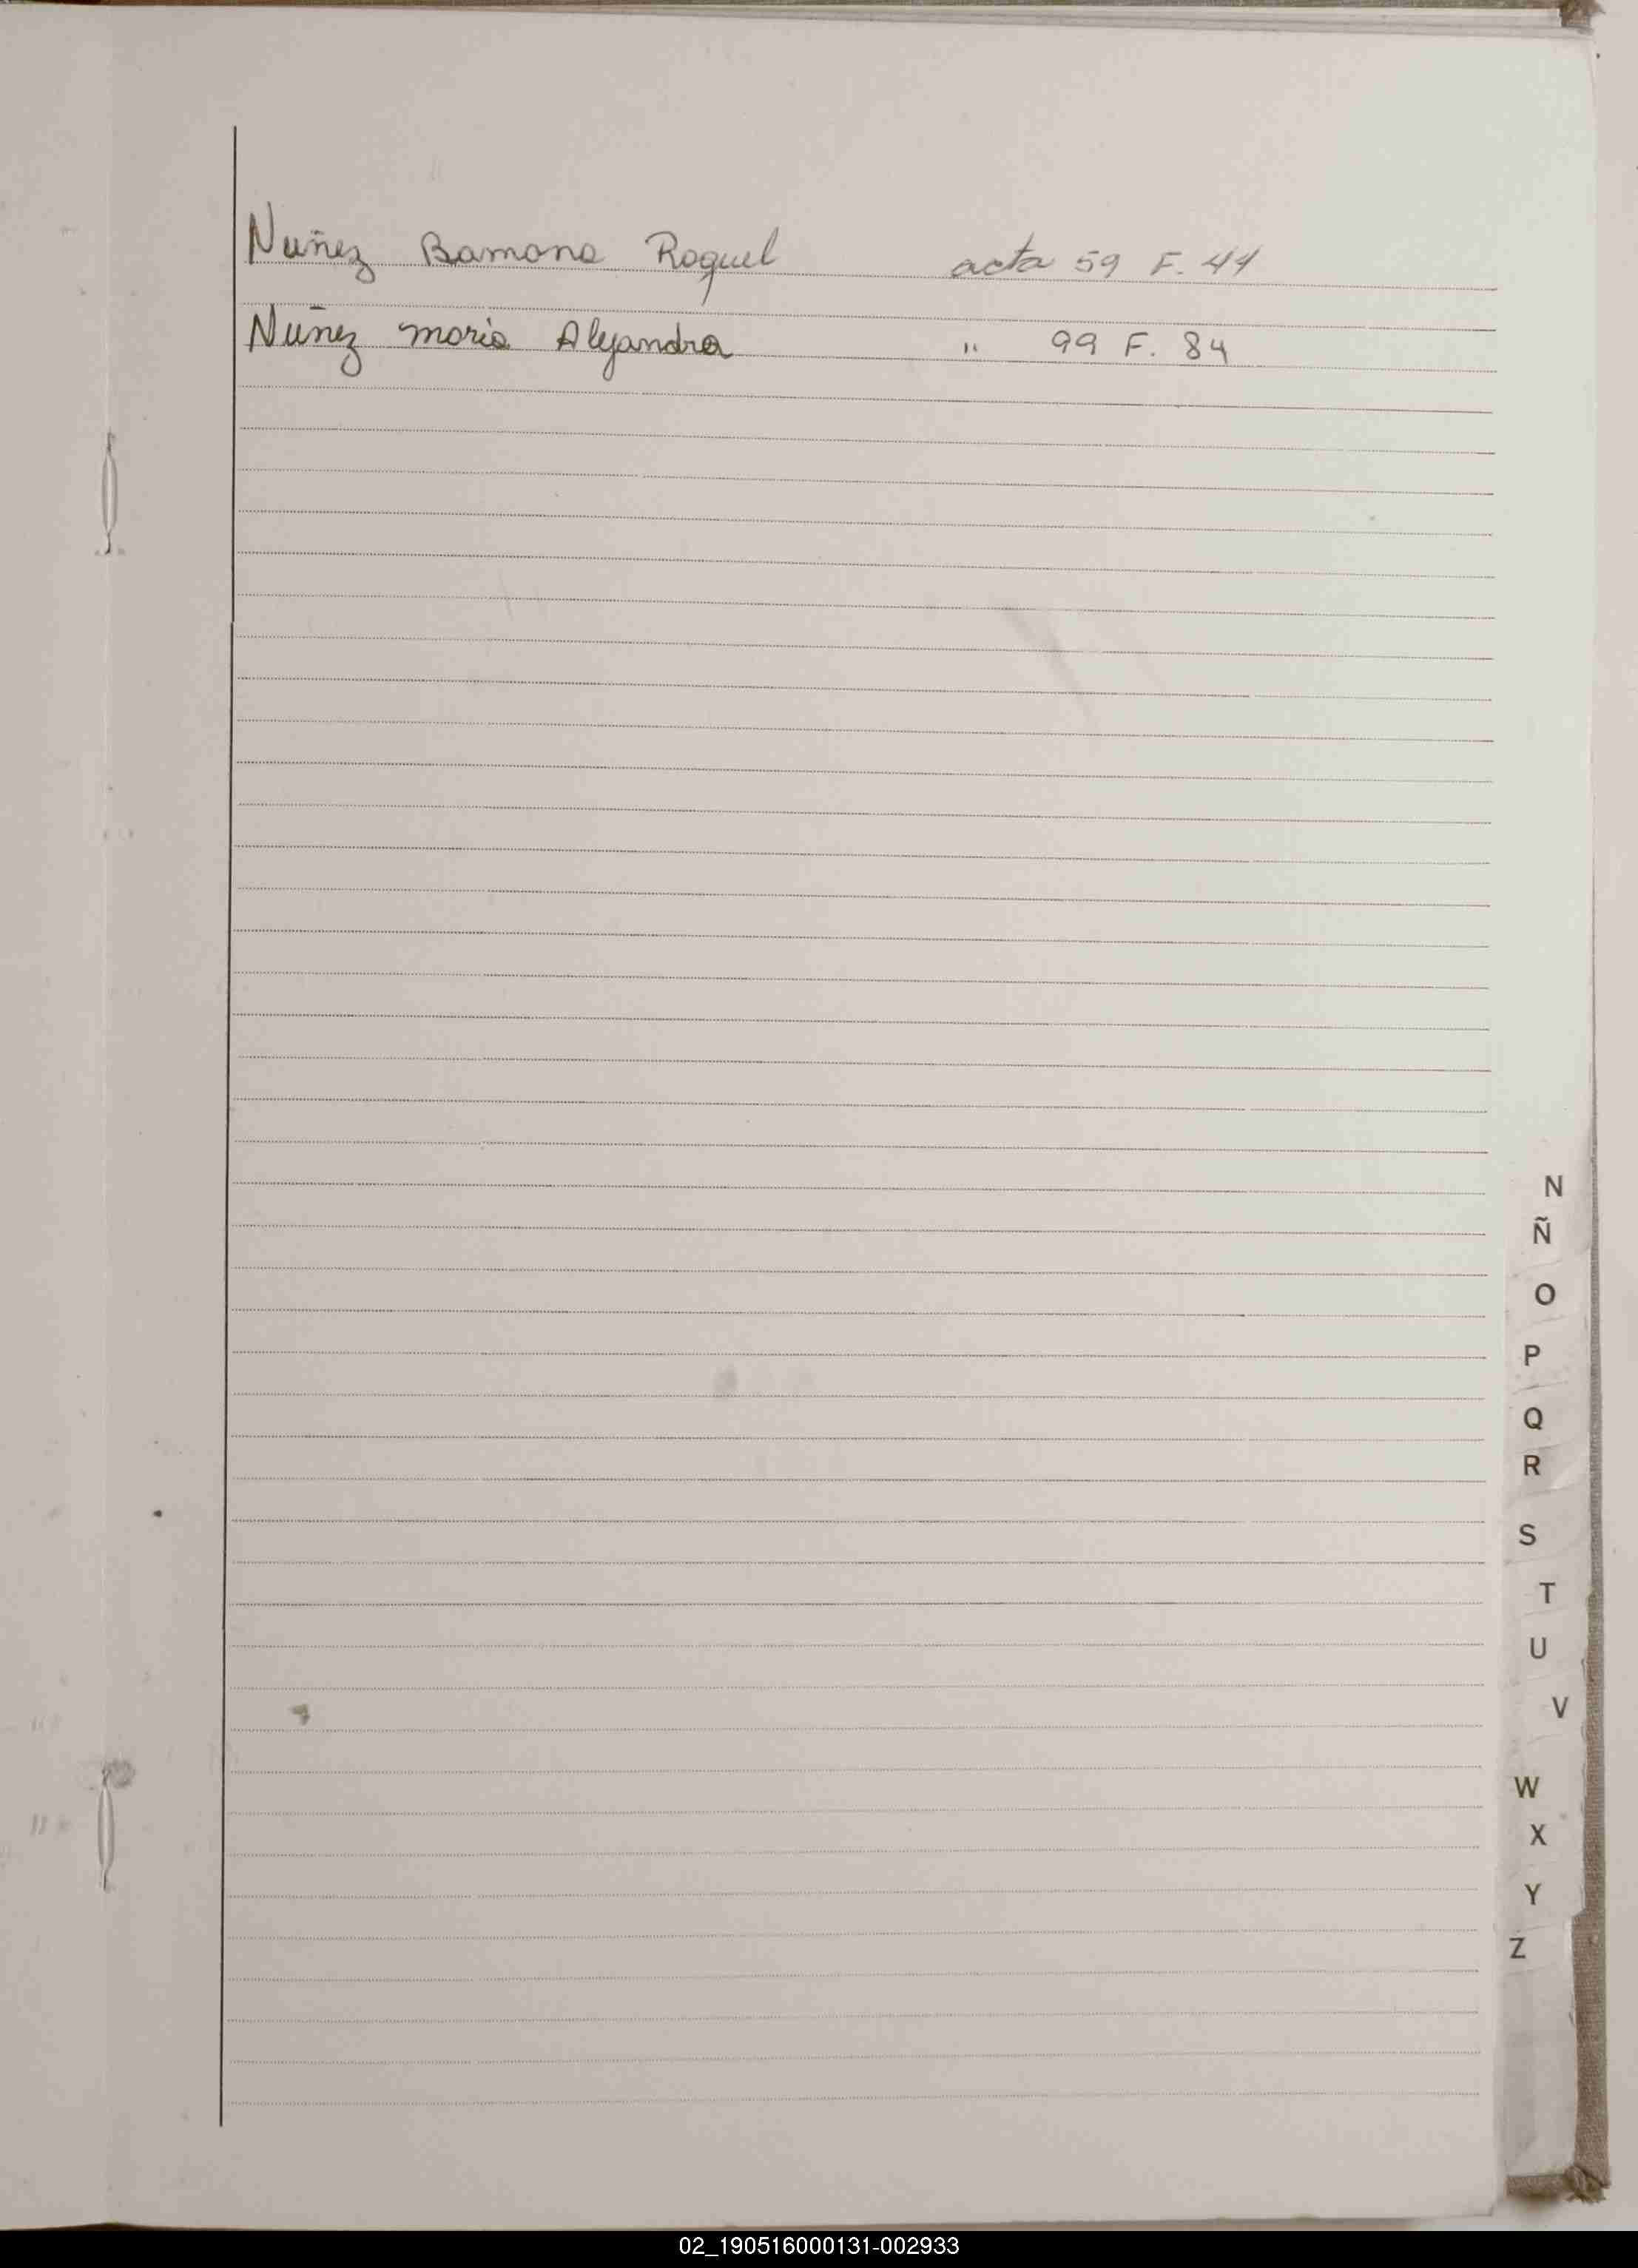 Nuñez Ramona Raquel acta 59 F. 44
Nuñez maria Alejandra " 99 F. 84
N
Ñ
O
P
Q
R
S
T
U
V
W
X
Y
Z
02_190516000131-002933